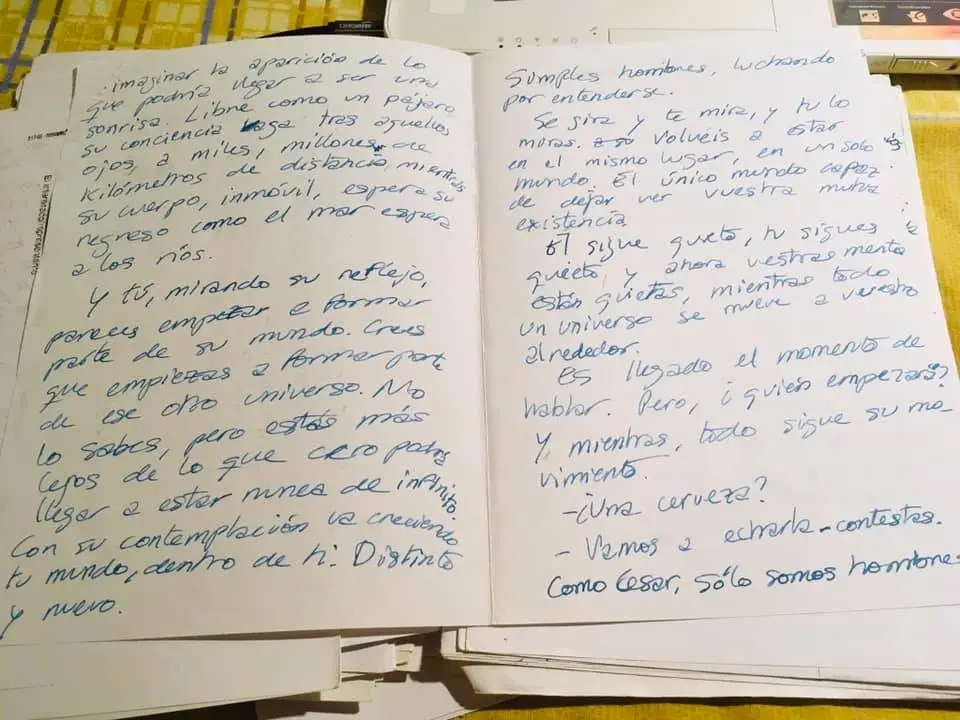 imaginar la aparición de lo
que podría llegar a ser una
sonrisa. Libre como un pájaro,
su conciencia vaga tras aquellos
ojos, a miles, millones de
kilómetros de distancia, mientras
su cuerpo, inmóvil, espera su
regreso como el mar espera
a los ríos.
Y tú, mirando su reflejo,
pareces empezar a formar
parte de su mundo. Crees
que empiezas a formar parte
de ese otro universo. No
lo sabes, pero estás más
lejos de lo que creo podrás
llegar a estar nunca de infinito.
Con su contemplación va creciendo
tu mundo, dentro de ti. Distinto
y nuevo.
Simples hombres, luchando
por entenderse.
Se gira y te mira, y tú lo
miras. Volvéis a estar
en el mismo lugar, en un solo
mundo. El único mundo capaz
de dejar ver vuestra mutua
existencia.
Él sigue quieto, tú sigues
quieto, y ahora vestras mentes
están quietas, mientras todo
un universo se mueve a vuestro
alrededor.
Es llegado el momento de
hablar. Pero, ¿quién empezará?
Y, mientras, todo sigue su mo-
vimiento.
- ¿Una cerveza?
- Vamos a echarla - contestas.
Como César, sólo somos hombres